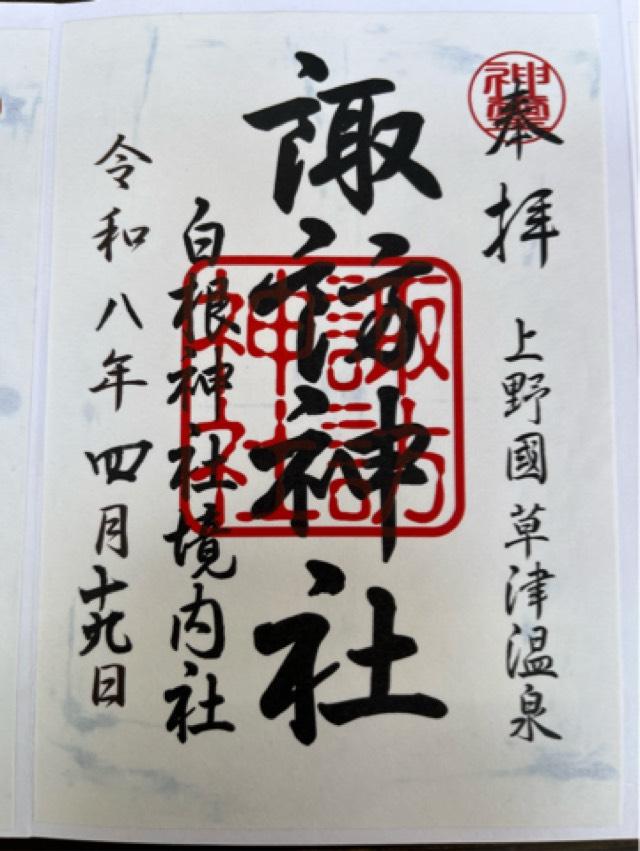 奉拝
上野國草津温泉
諏訪神社
諏訪神社
白根神社境内社
令和八年四月十九日